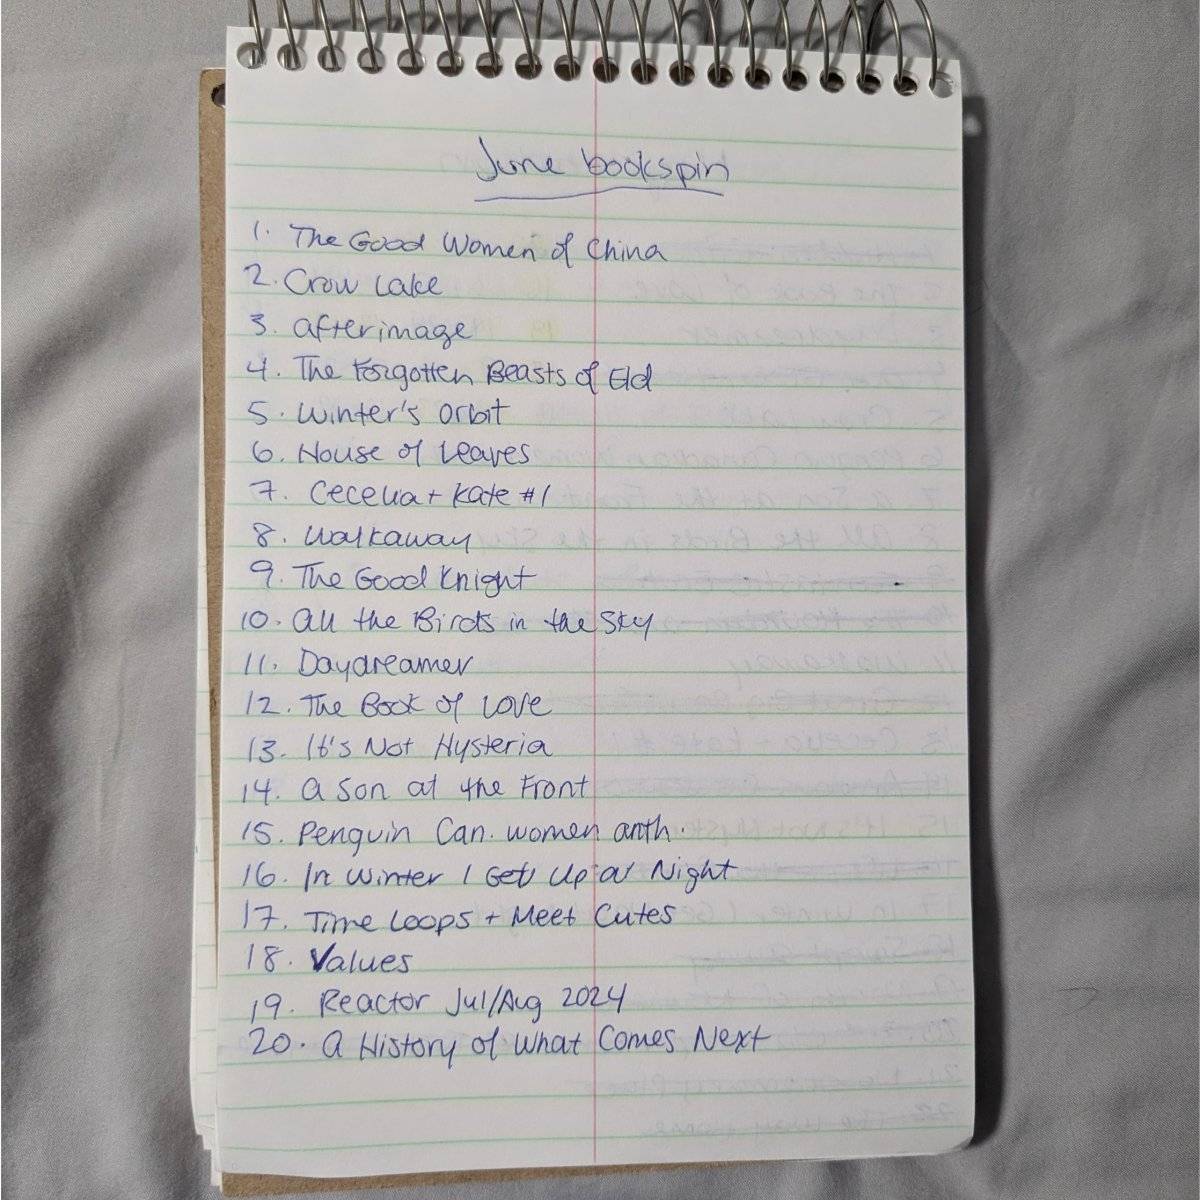 June bookspin
1. The Good Women of China
2. Crow Lake
3. afterimage
4. The Forgotten Beasts of Eld
5. Winter's Orbit
6. House of Leaves
7. Cecelia + Kate #1
8. Walkaway
9. The Good Knight
10. All the Birds in the Sky
11. Daydreamer
12. The Book of Love
13. It's Not Hysteria
14. A Son at the Front
15. Penguin Can. women anth.
16. In Winter I Get Up at Night
17. Time Loops + Meet Cutes
18. Values
19. Reactor Jul/Aug 2024
20. A History of What Comes Next